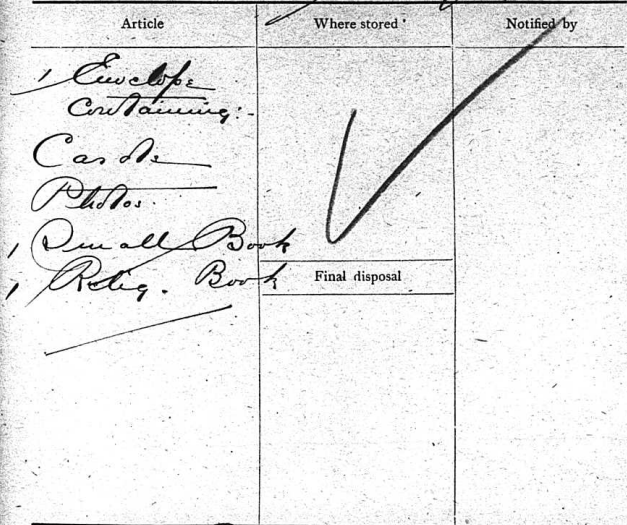 Article Where stored Notified by
1 Envelope
Containing:-
Cards
Photos.
1 Small Book
1 Relig. Book
Final disposal